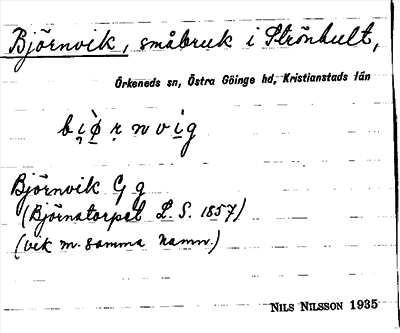 Björnvik, småbruk i Strönhult,
Örkeneds sn, Östra Göinge hd, Kristianstads län
bi̯ø̀ṛnvi̱g
Björnvik G g
(Björnatorpet L. S. 1857)
(vik m. samma namn.)
NILS NILSSON 1935